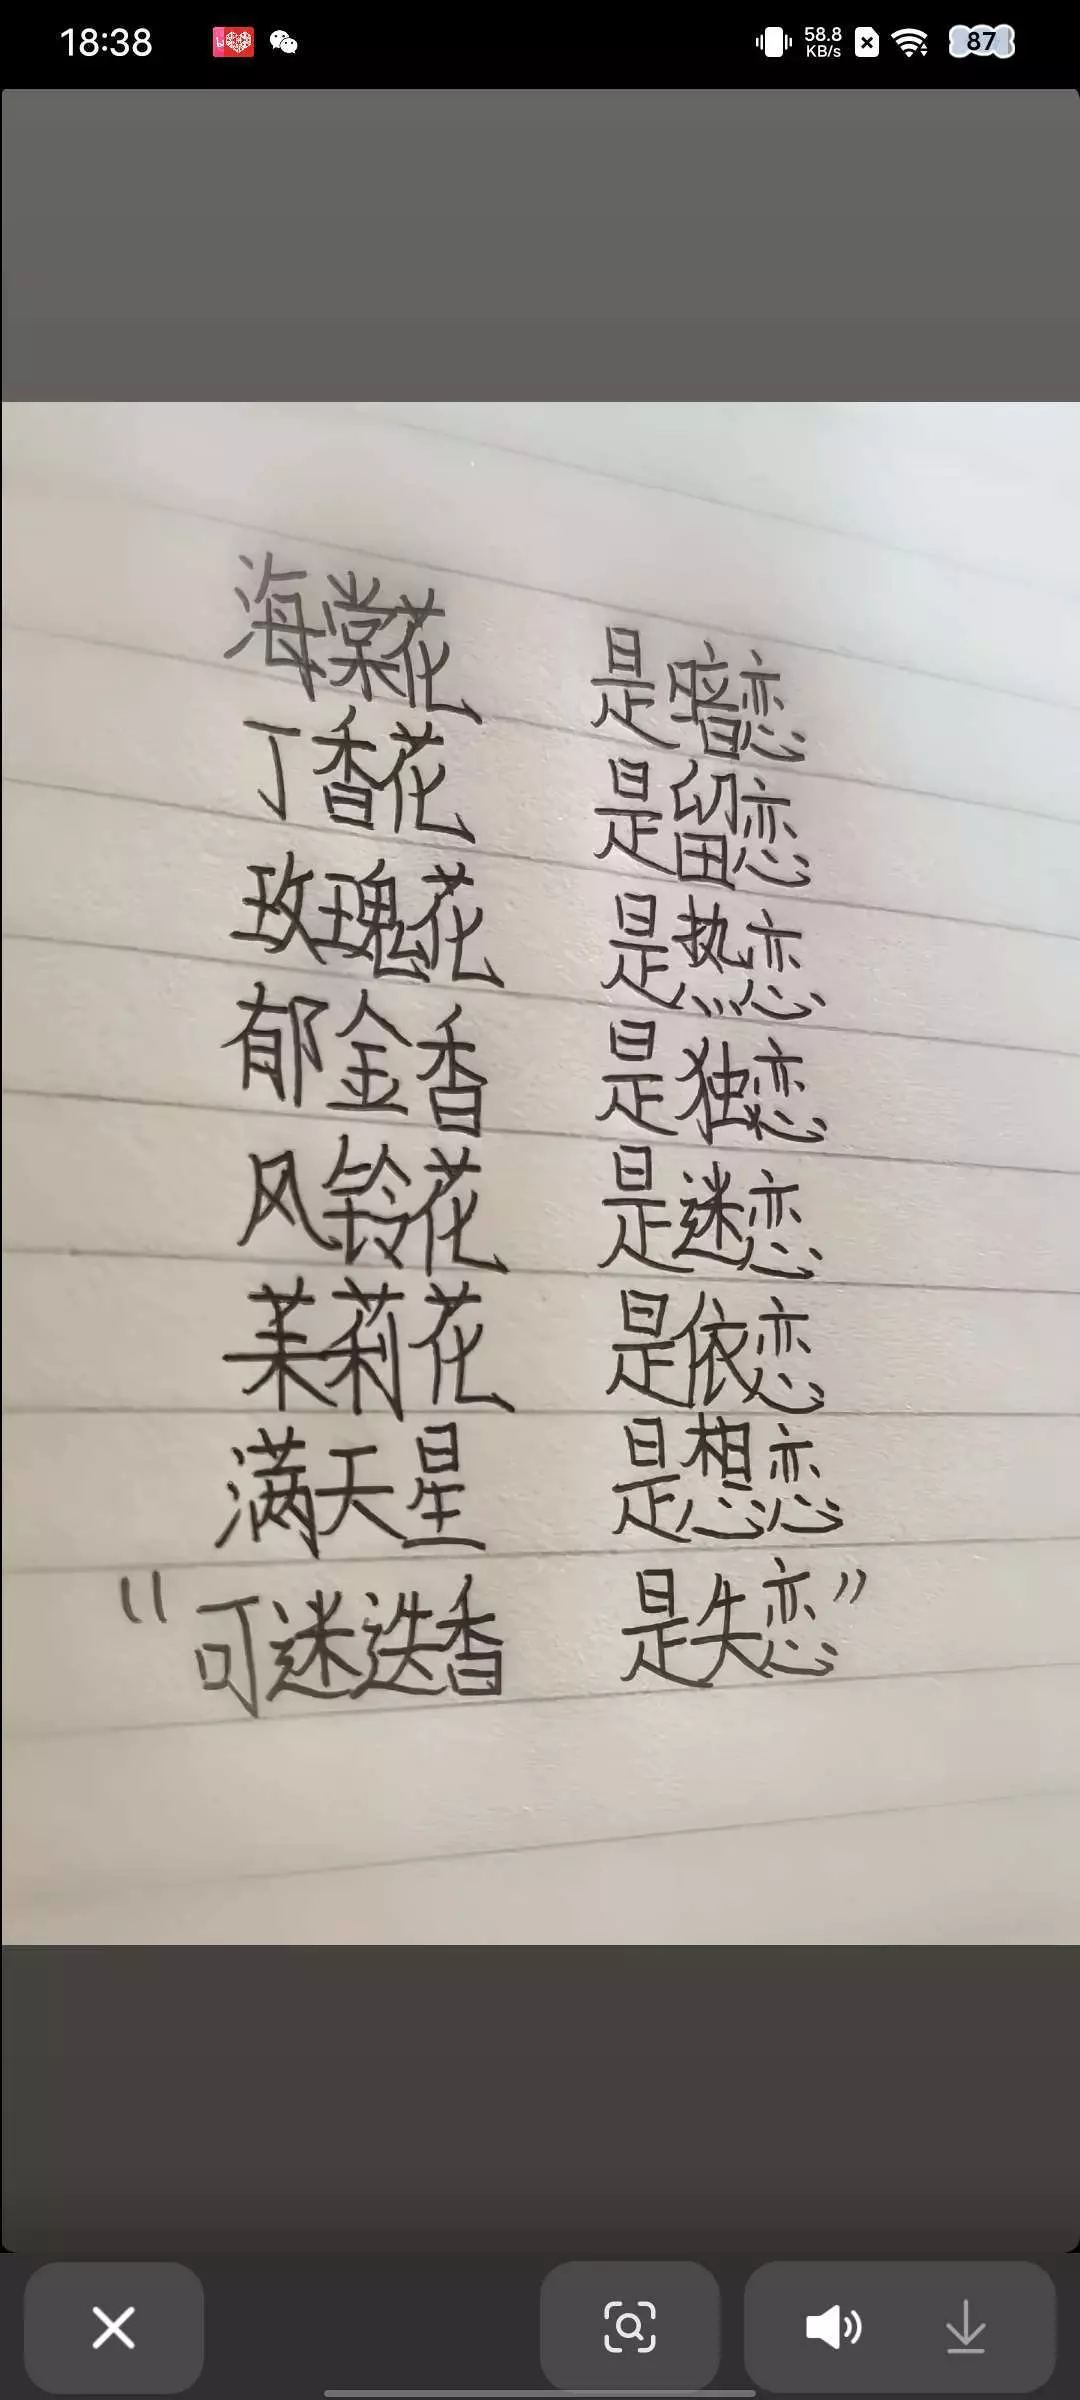 18:38 58.8 KB/s 87
海棠花 是暗恋
丁香花 是留恋
玫瑰花 是热恋
郁金香 是独恋
风铃花 是迷恋
茉莉花 是依恋
满天星 是想恋
“可迷迭香 是失恋”